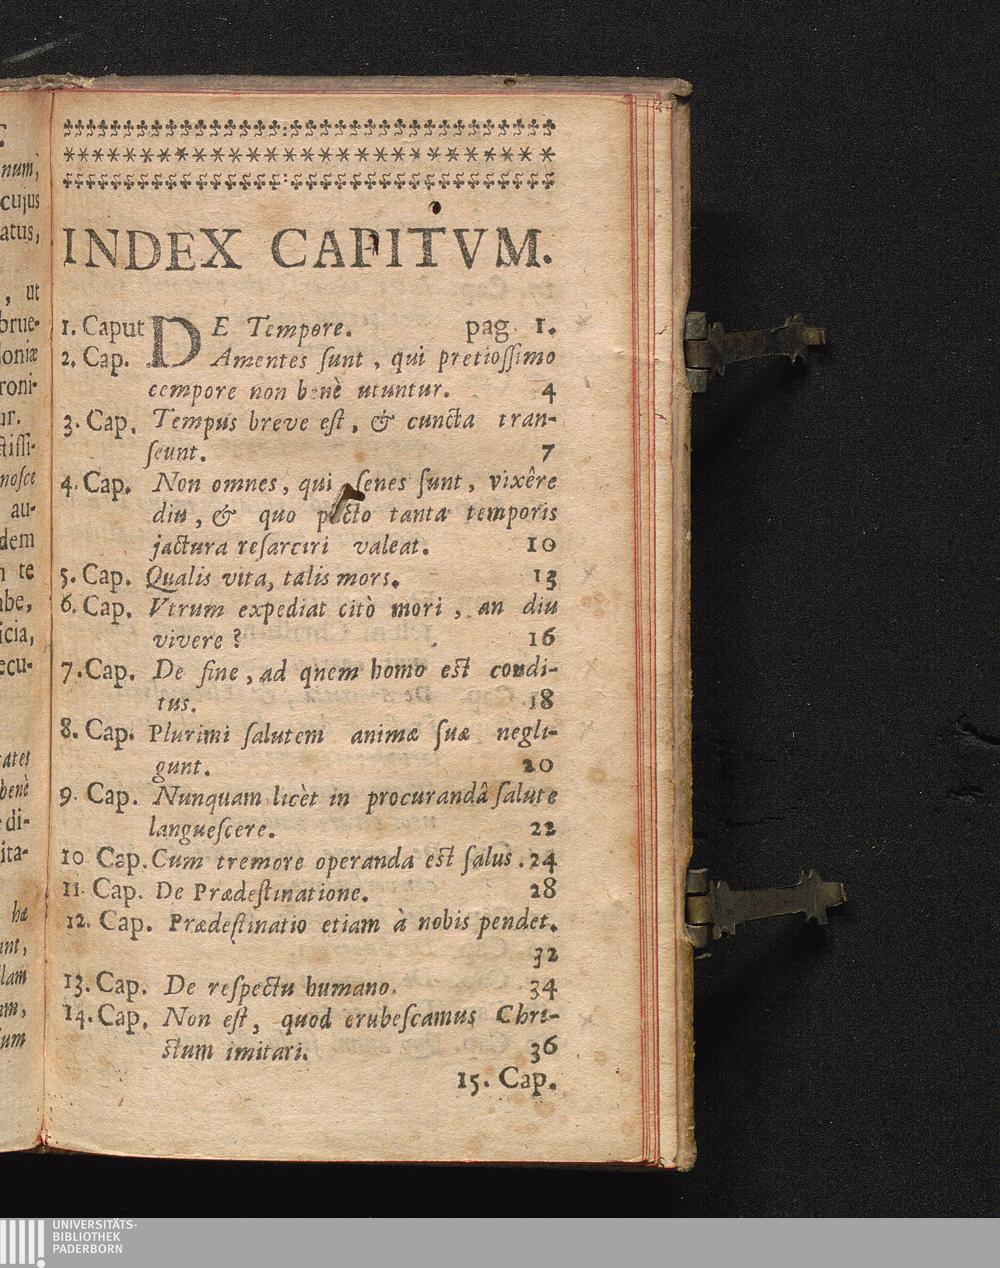 INDEX CAPITVM.
1. Caput DE Tempore. pag. 1.
2. Cap. Amentes ſunt, qui pretioſſimo
tempore non benè utuntur. 4
3. Cap. Tempus breve eſt, & cuncta tran-
ſeunt. 7
4. Cap. Non omnes, qui ſenes ſunt, vixêre
diu, & quo pacto tanta temporis
jactura reſarciri valeat. 10
5. Cap. Qualis vita, talis mors. 13
6. Cap. Vtrum expediat citò mori, an diu
vivere? 16
7. Cap. De fine, ad quem homo eſt condi-
tus. 18
8. Cap. Plurimi ſalutem animæ ſuæ negli-
gunt. 20
9. Cap. Nunquam licèt in procurandâ ſalute
langueſcere. 22
10 Cap. Cum tremore operanda eſt ſalus. 24
11. Cap. De Prædeſtinatione. 28
12. Cap. Prædeſtinatio etiam à nobis pendet.
32
13. Cap. De reſpectu humano. 34
14. Cap. Non eſt, quod erubeſcamus Chri-
ſtum imitari. 36
15. Cap.
num,
cujus
atus,
, ut
brue-
loniæ
roni-
ur.
ſtiſſi-
noſce
au-
dem
n te
abe,
icia,
ecu-
benè
di-
ita-
hæ
UNIVERSITÄTS-
BIBLIOTHEK
PADERBORN